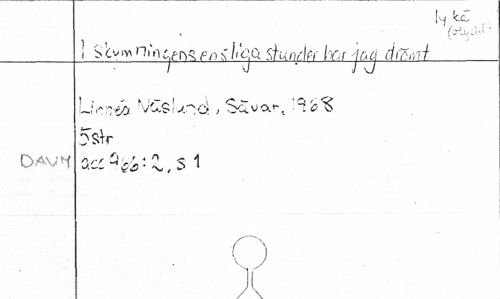 ly kä
(olyckl.)
I skymningens ensliga stunder har jag drömt
Linnéa Näslund, Sävar, 1968
5 str
DAUM acc 966:2, s 1